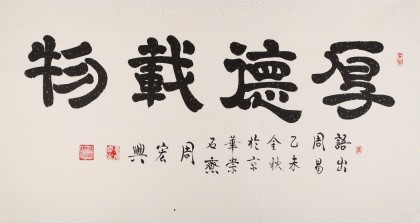 厚德載物
語出
周易
乙未
金秋
於京
華崇
石齋
周宏興